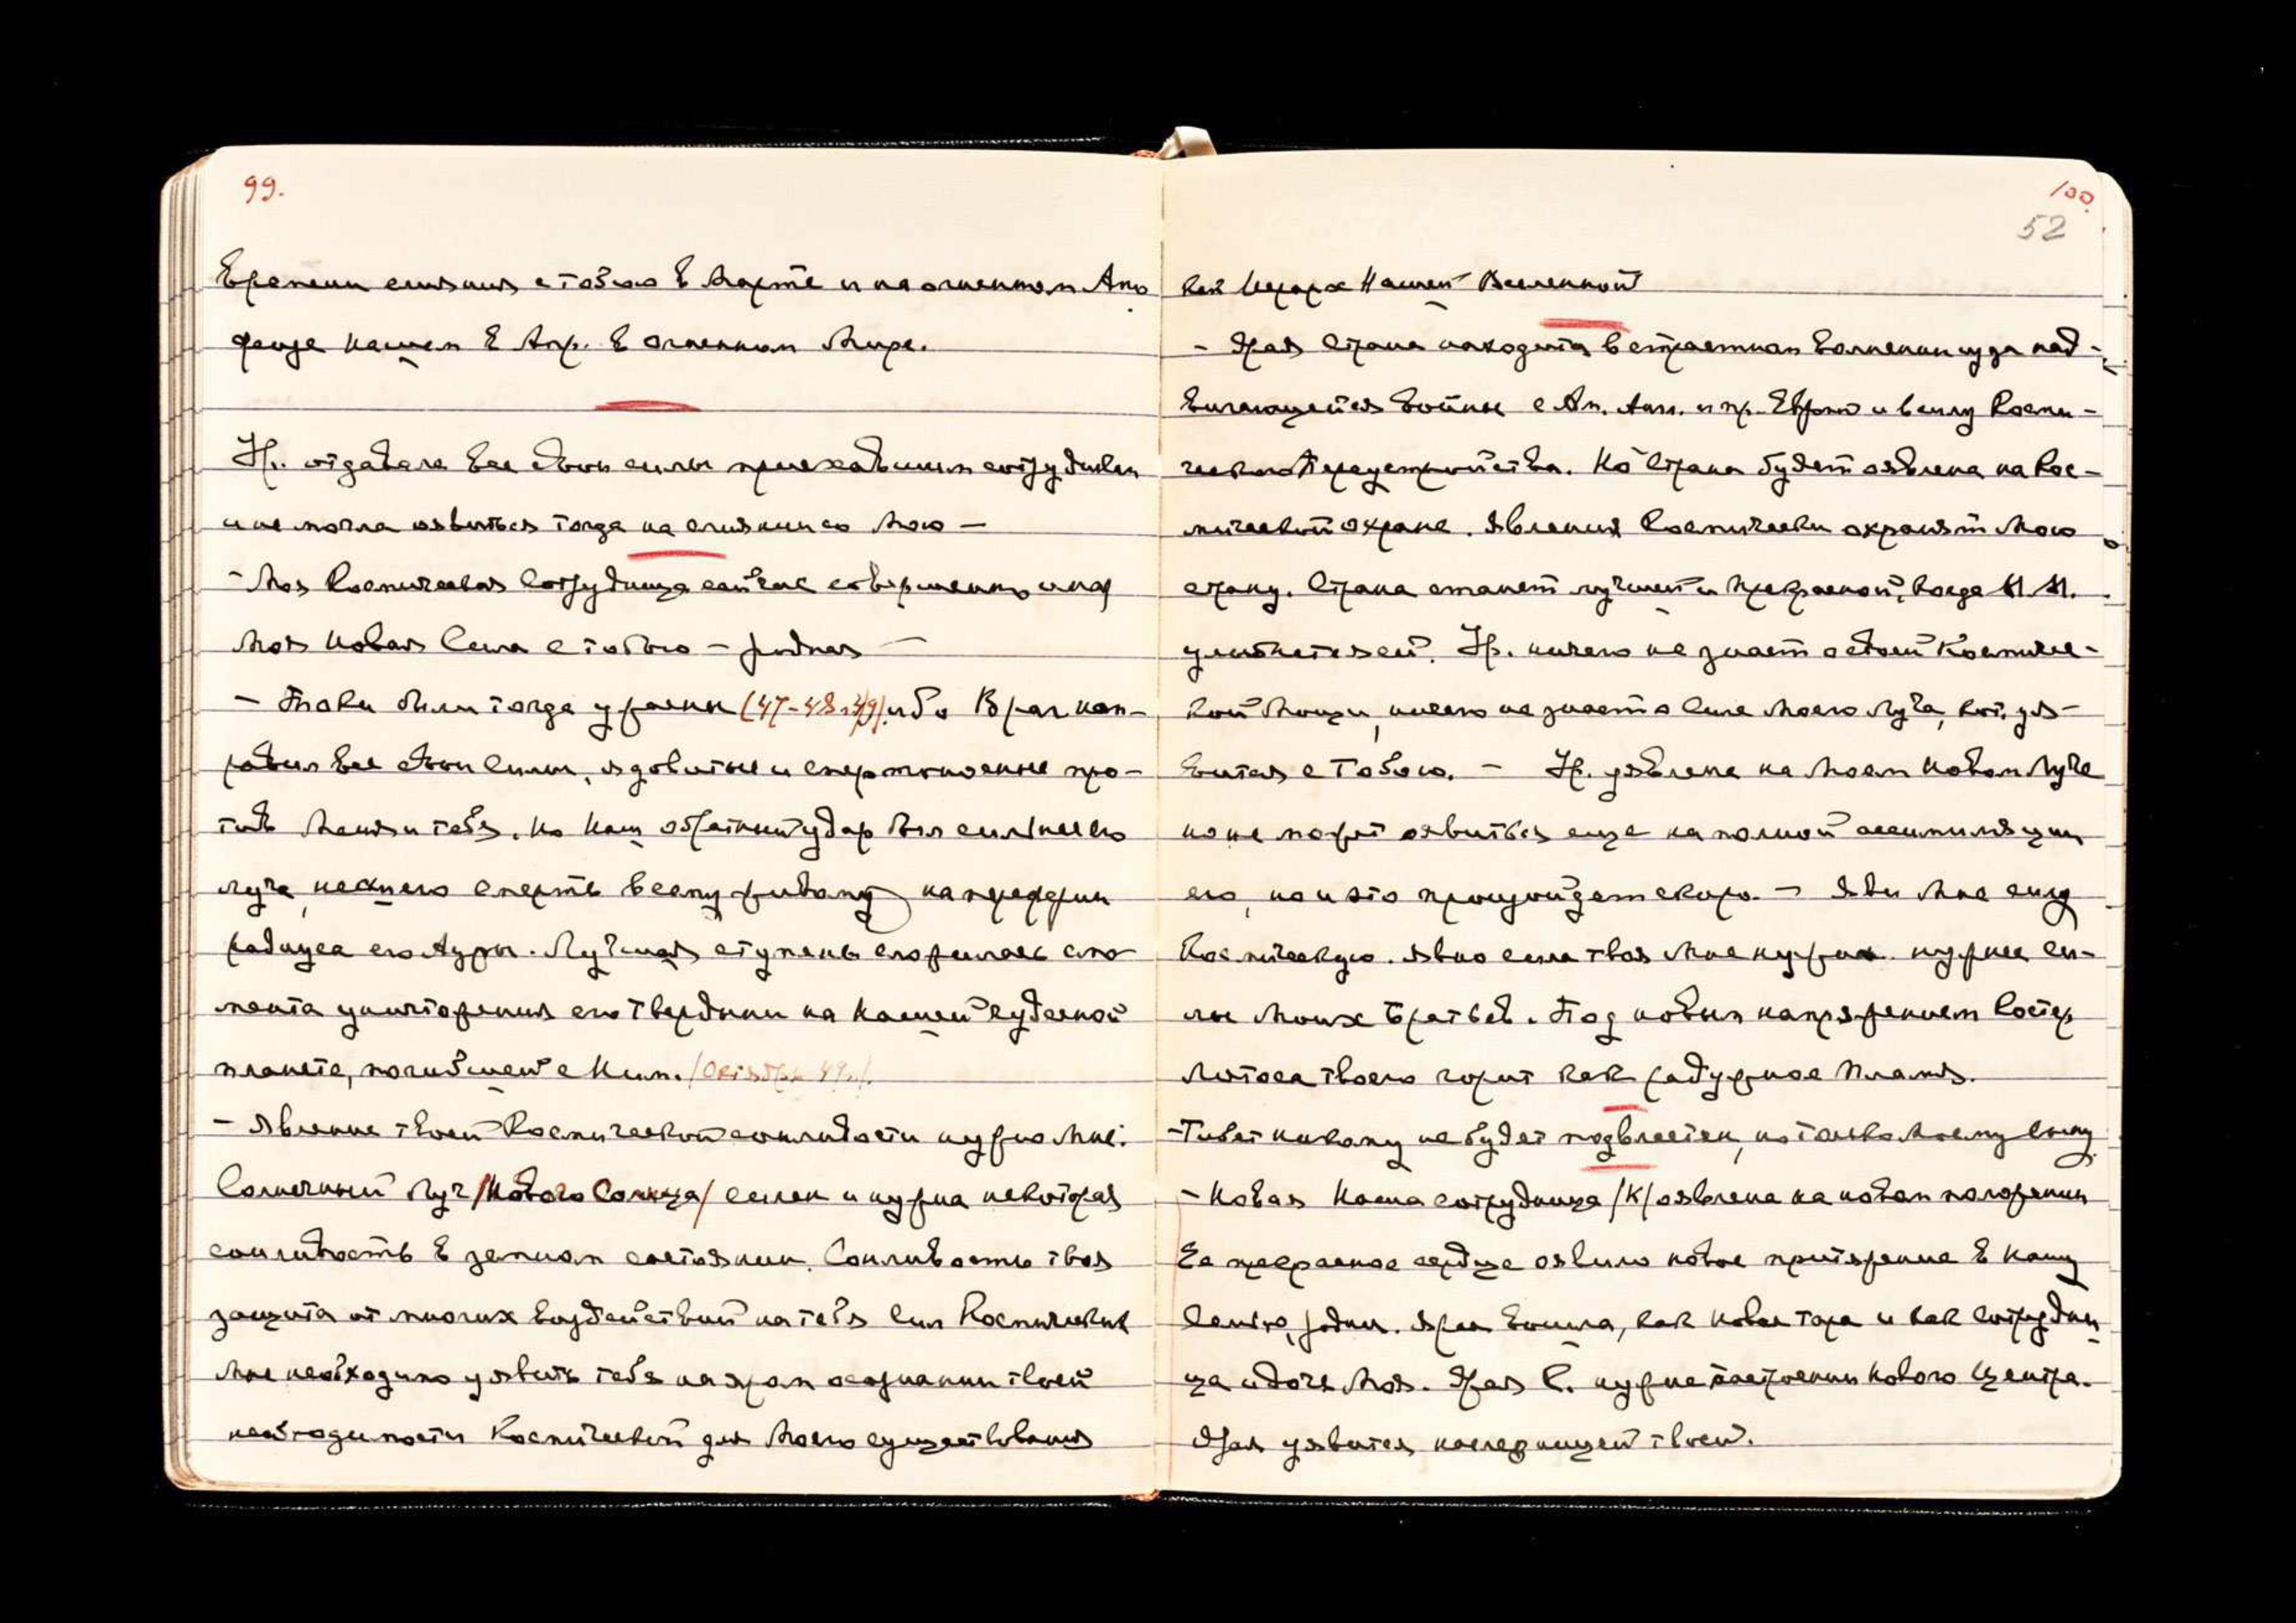 99.
Времени слияния с тобою в Марте и на огненном Апо
феозе нашем в Апр. в огненном Мире.
Ур. отдавала все свои силы приехавшим сотрудникам
и не могла явиться тогда на слиянии со Мною —
- Моя Космическая Сотрудница сейчас совершенно иная
Моя новая Сила с тобою — родная —
- Таки были тогда у раны (47-48-49) ибо Враг нап-
равил все свои Силы, ядовитые и смертоносные про-
тив Меня и тебя. Но Наш обратный удар был сильнее его
луча, несшего смерть всему живому на
радиуса его Ауры. Лучшая ступень ускорилась с мо-
мента уничтожения его твердыни на Нашей чудесной
планете, погибшей с Ним. /Октябрь 49г./
- Явление твоей Космической сонливости нужно Мне.
Солнечный Луч /Нового Солнца/ силен и нужна некоторая
сонливость в земном состоянии. Сонливость твоя
защита от многих воздействий на тебя сил Космических
Мне необходимо уявить тебя на яром осознании твоей
необходимости Космической для Моего существования
100.
52
как Иерарх Нашей Вселенной
- Ярая Страна находится в страстном волнении из за над-
вигающейся войны с Ам. Анг. и пр. Европою и в силу Косми-
ческого Переустройства. Но Страна будет оявлена на Кос-
мической охране. Явления Космически охранят Мою
страну. Страна станет лучшей и Прекрасной, когда И. И.
улыбнется ей. Ур. ничего не знает о своей Космичес-
кой Мощи, ничего не знает о Силе Моего Луча, кот. уя-
вится с Тобою. — Ур. уявлена на Моем Новом Луче
но не может оявиться еще на полной ассимиляции
его, но и это произойдет скоро. — Яви Мне силу
Космическую. Явно сила твоя Мне нужна нужнее си-
лы Моих Братьев. Под новым напряжением Костер
Лотоса твоего горит как радужное Пламя.
- Тибет никому не будет подвластен, но только Моему Сыну
- Новая Наша сотрудница /К/ оявлена на новом положении
Ее прекрасное сердце оявило новое притяжение в Нашу
Семью, родная. Ярая Вошла, как Новая Тара и как Сотрудни
ца и дочь Моя. Ярая С. нужна построении Нового Центра.
Ярая уявится наследницей твоей.